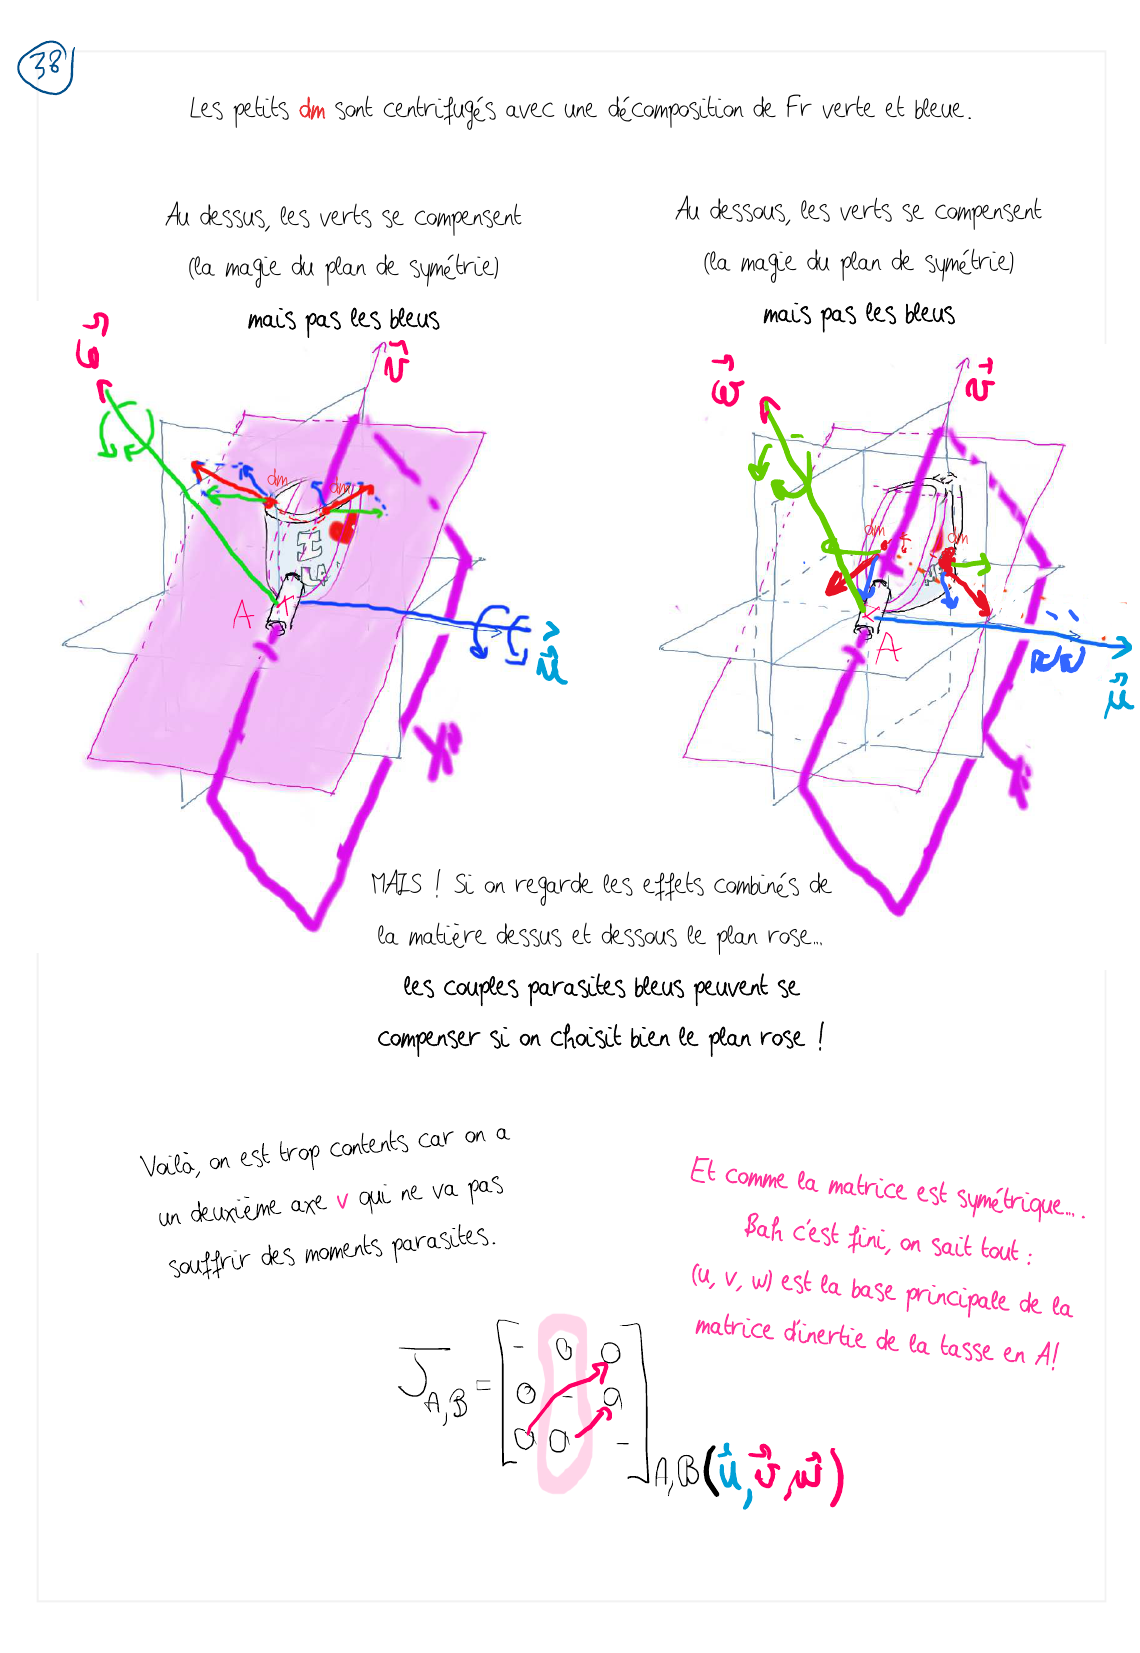 38
Les petits dm sont centrifugés avec une décomposition de Fr verte et bleue.
Au dessus, les verts se compensent
(la magie du plan de symétrie)
mais pas les bleus
Au dessous, les verts se compensent
(la magie du plan de symétrie)
mais pas les bleus
v
dm
dm
A
u
v
dm
dm
A
u
MAIS ! Si on regarde les effets combinés de
la matière dessus et dessous le plan rose...
les couples parasites bleus peuvent se
compenser si on choisit bien le plan rose !
Voilà, on est trop contents car on a
un deuxième axe v qui ne va pas
souffrir des moments parasites.
Et comme la matrice est symétrique....
Bah c'est fini, on sait tout :
(u, v, w) est la base principale de la
matrice d'inertie de la tasse en A!
- 0 0
J A,B = 0 - 0
0 0 -
A,B (u, v, w)